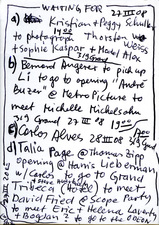 WAITING FOR 27 III 08
a) Kristjan + Peggy Schul
to photograph Thorsten Weiss
+ Sophie Kaspar + Model Alex
b) Bernand Angerer to pick up
Li to go to opening "André
Buzer @ Metro Picture to
meet Michelle Michelsohn
3rd Grand 27 III
c) Carlos Alves 28 III 08
d) Italia Page @ Thomas Zipp
opening @ Harris Lieberman
w/ Carlos to go to Grand
Tribeca (Hotel) to meet
David Fried @ Scope Party
to meet Eric + Helena
+ Bogdan ? to go to the